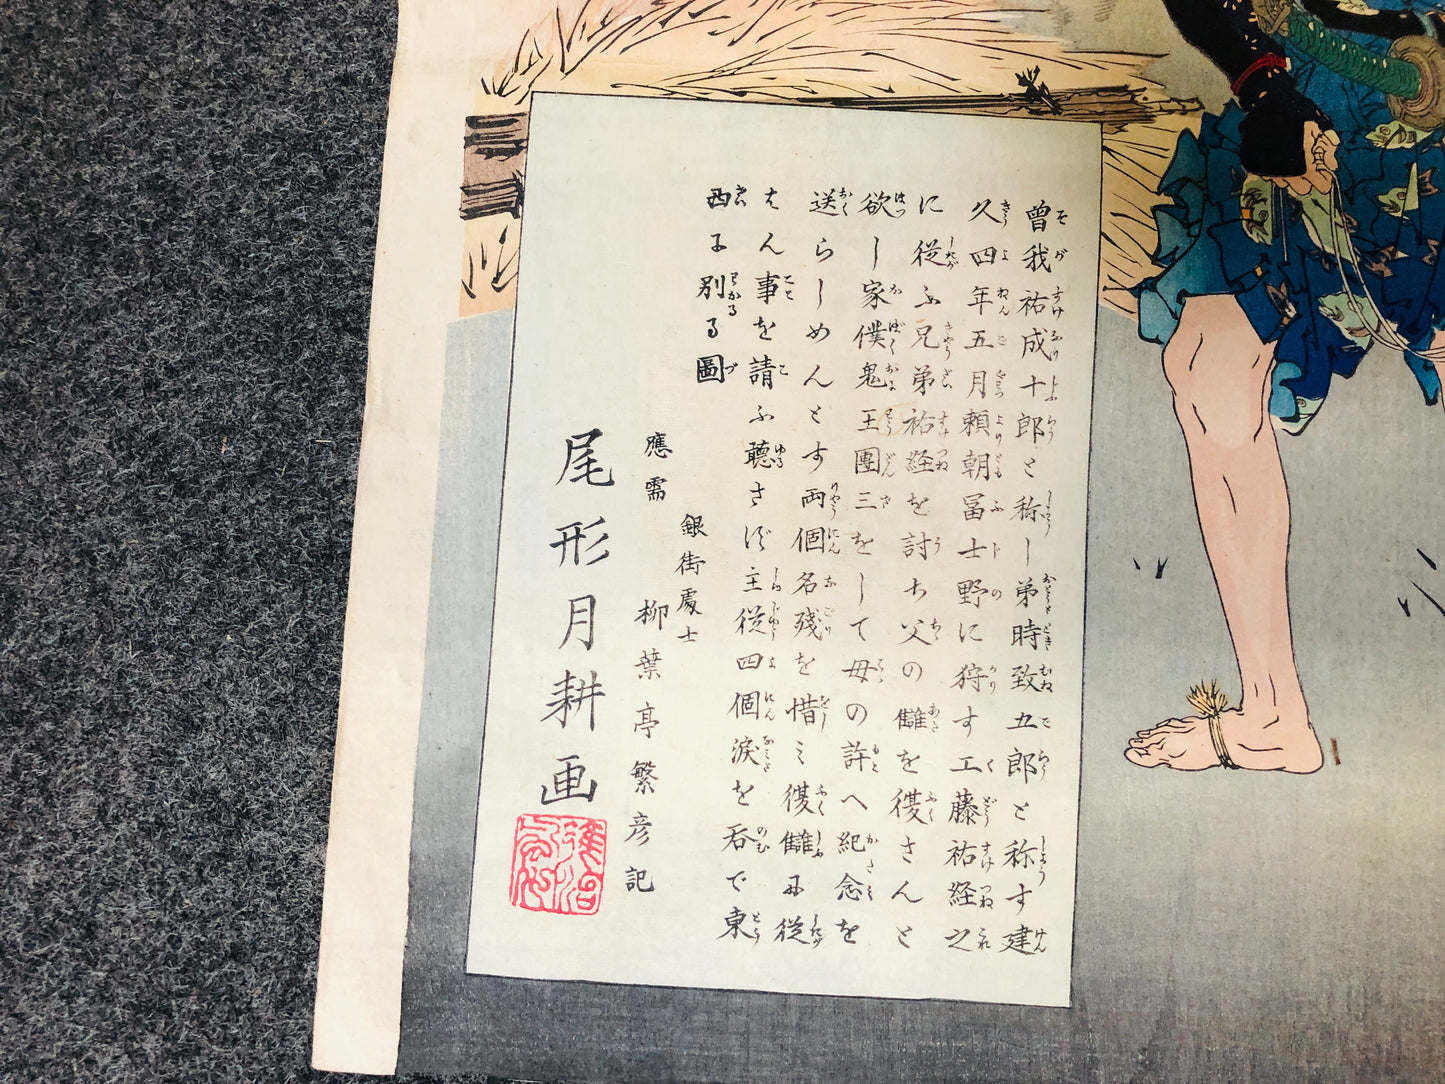 曾我祐成十郎と称し弟時致五郎と称す建
久四年五月頼朝冨士野に狩す工藤祐経之
に従ふ兄弟祐経を討ち父の讎を復さんと
欲し家僕鬼王團三をして母の許へ紀念を
送らしめんとす両個名残を惜み復讎に従
はん事を請ふ聴さず主従四個涙を呑で東
西に別るゝ圖
應需
銀街處士
柳葉亭繁彦記
尾形月耕画